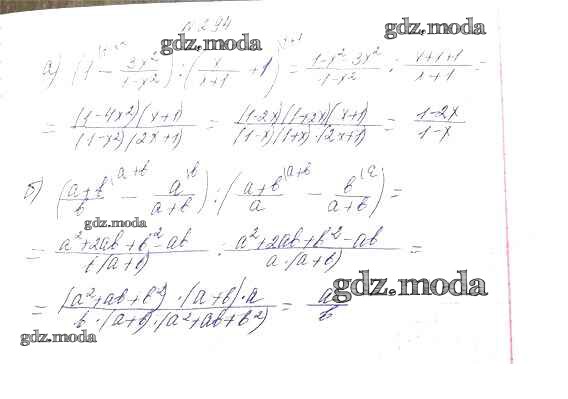 № 294
gdz.moda
gdz.moda
а) (1 - 3x²/(1-x²)) : (x/(x+1) + 1) = (1-x²-3x²)/(1-x²) : (x+1+1)/(x+1) =
= (1-4x²)(x+1)/((1-x²)(2x+1)) = (1-2x)(1+2x)(x+1)/((1-x)(1+x)·(2x+1)) = (1-2x)/(1-x)
б) ((a+b)/b - a/(a+b)) : ((a+b)/a - b/(a+b)) =
gdz.moda
= (a²+2ab+b²-ab)/(b(a+b)) : (a²+2ab+b²-ab)/(a·(a+b)) =
gdz.moda
= (a²+ab+b²)·(a+b)·a/(b·(a+b)·(a²+ab+b²)) = a/b
gdz.moda